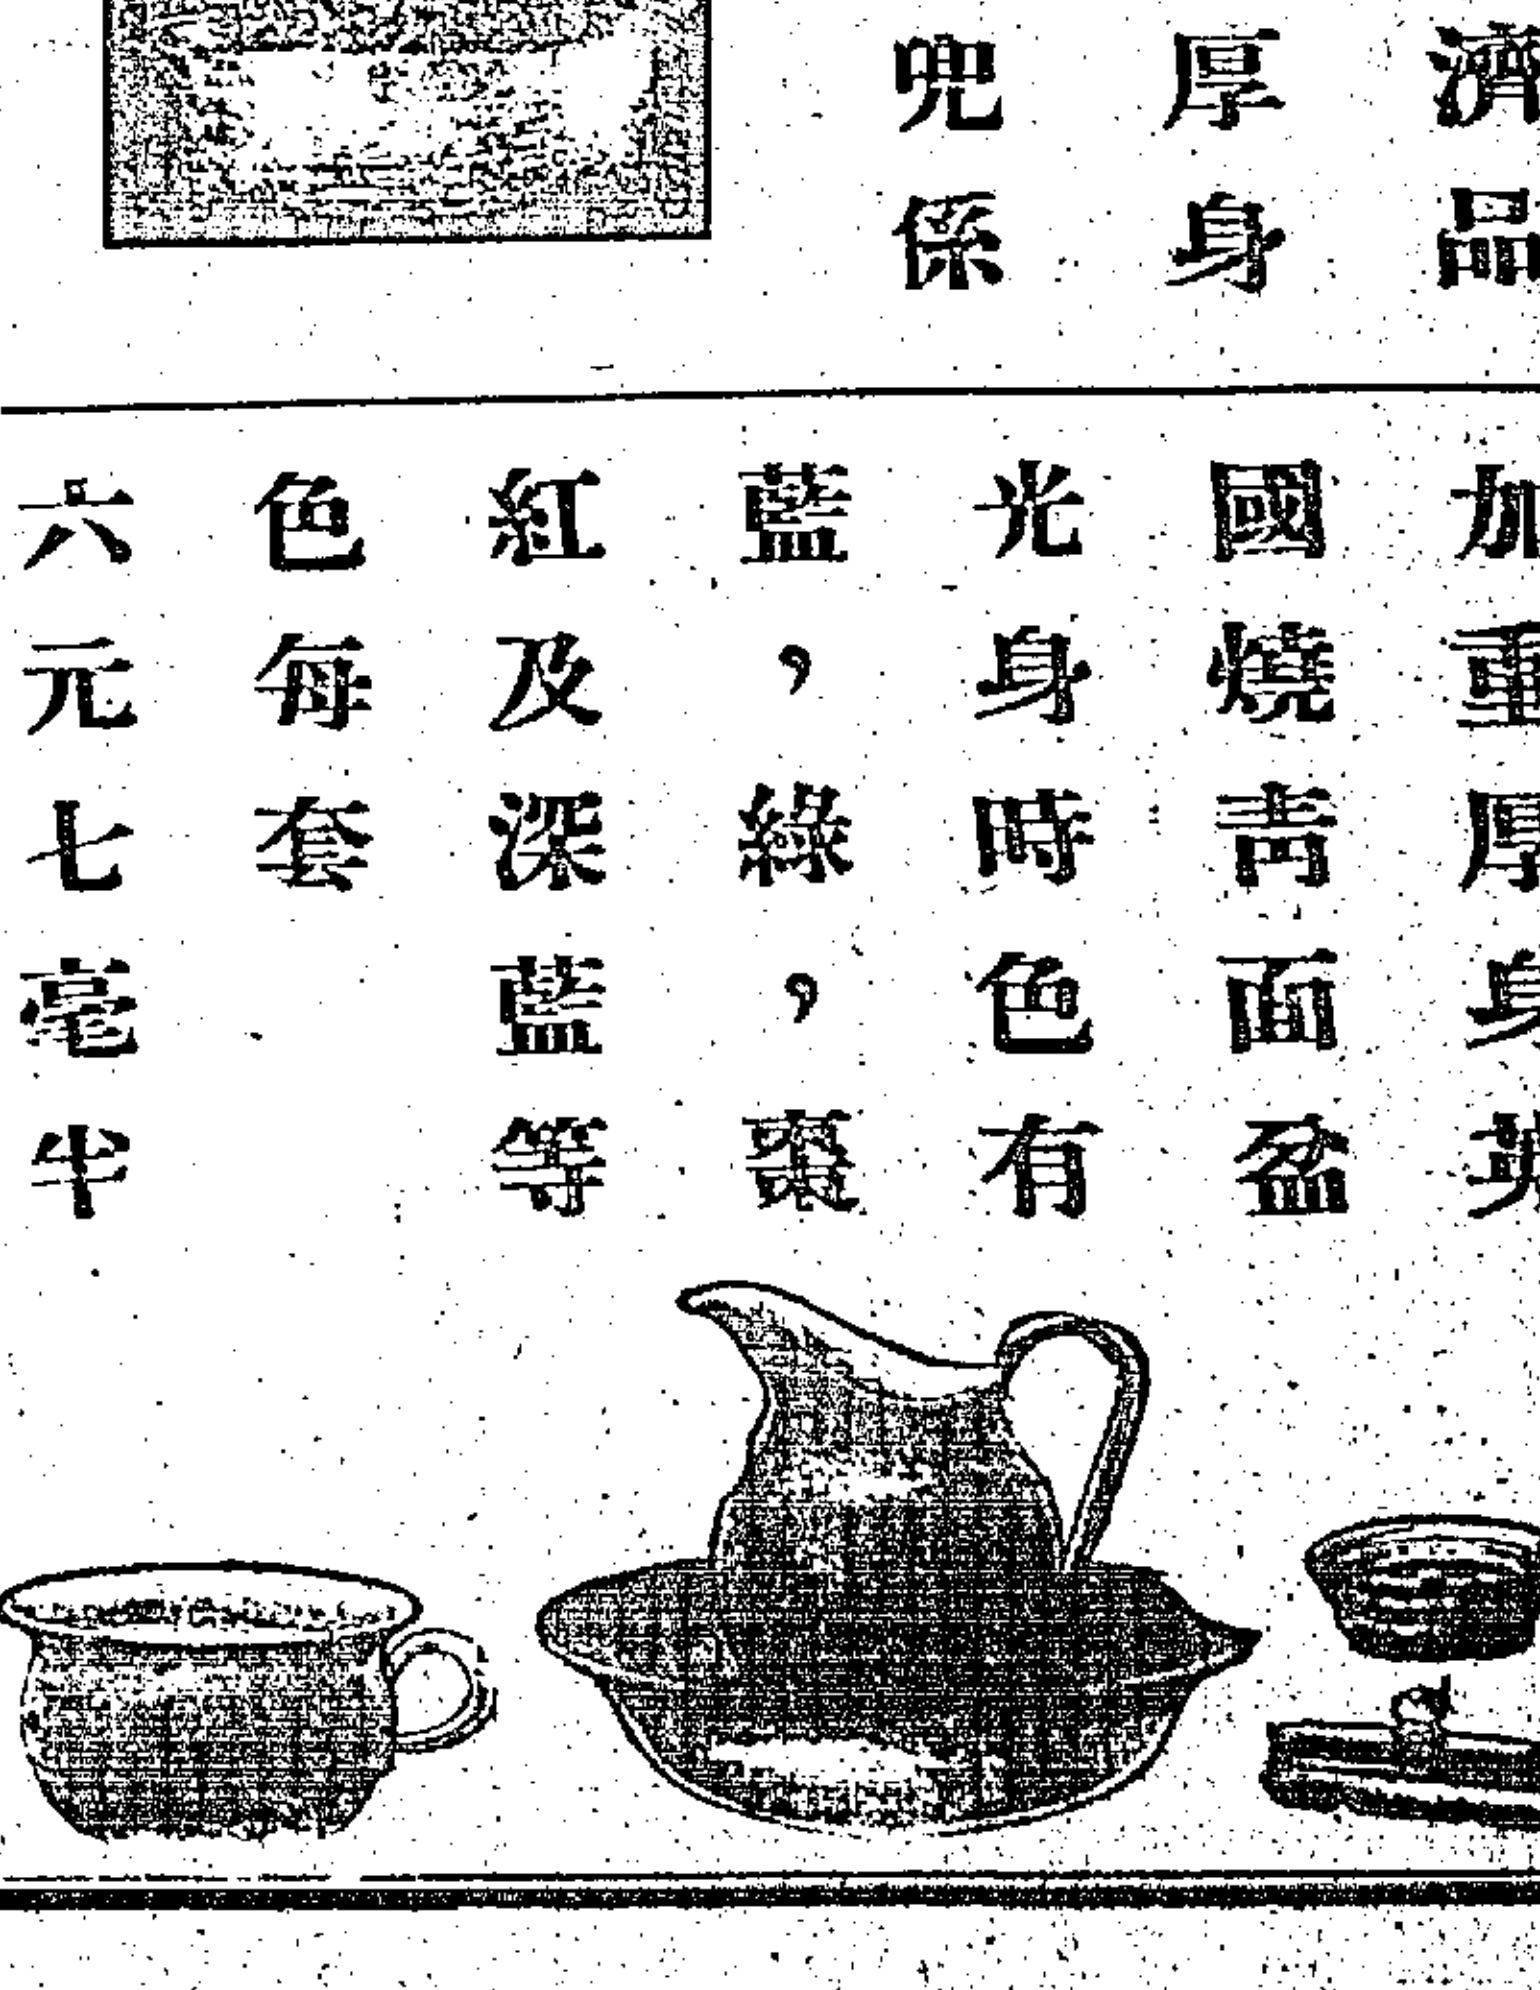 濟品
厚身
兜係
加重厚身英
國燒青面盆
光身時色有
藍，綠，棗
紅及深藍等
色每套
六元七毫半